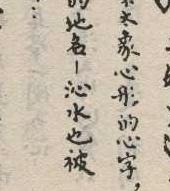 不太象心形的心字，
的地名－沁水也被
…